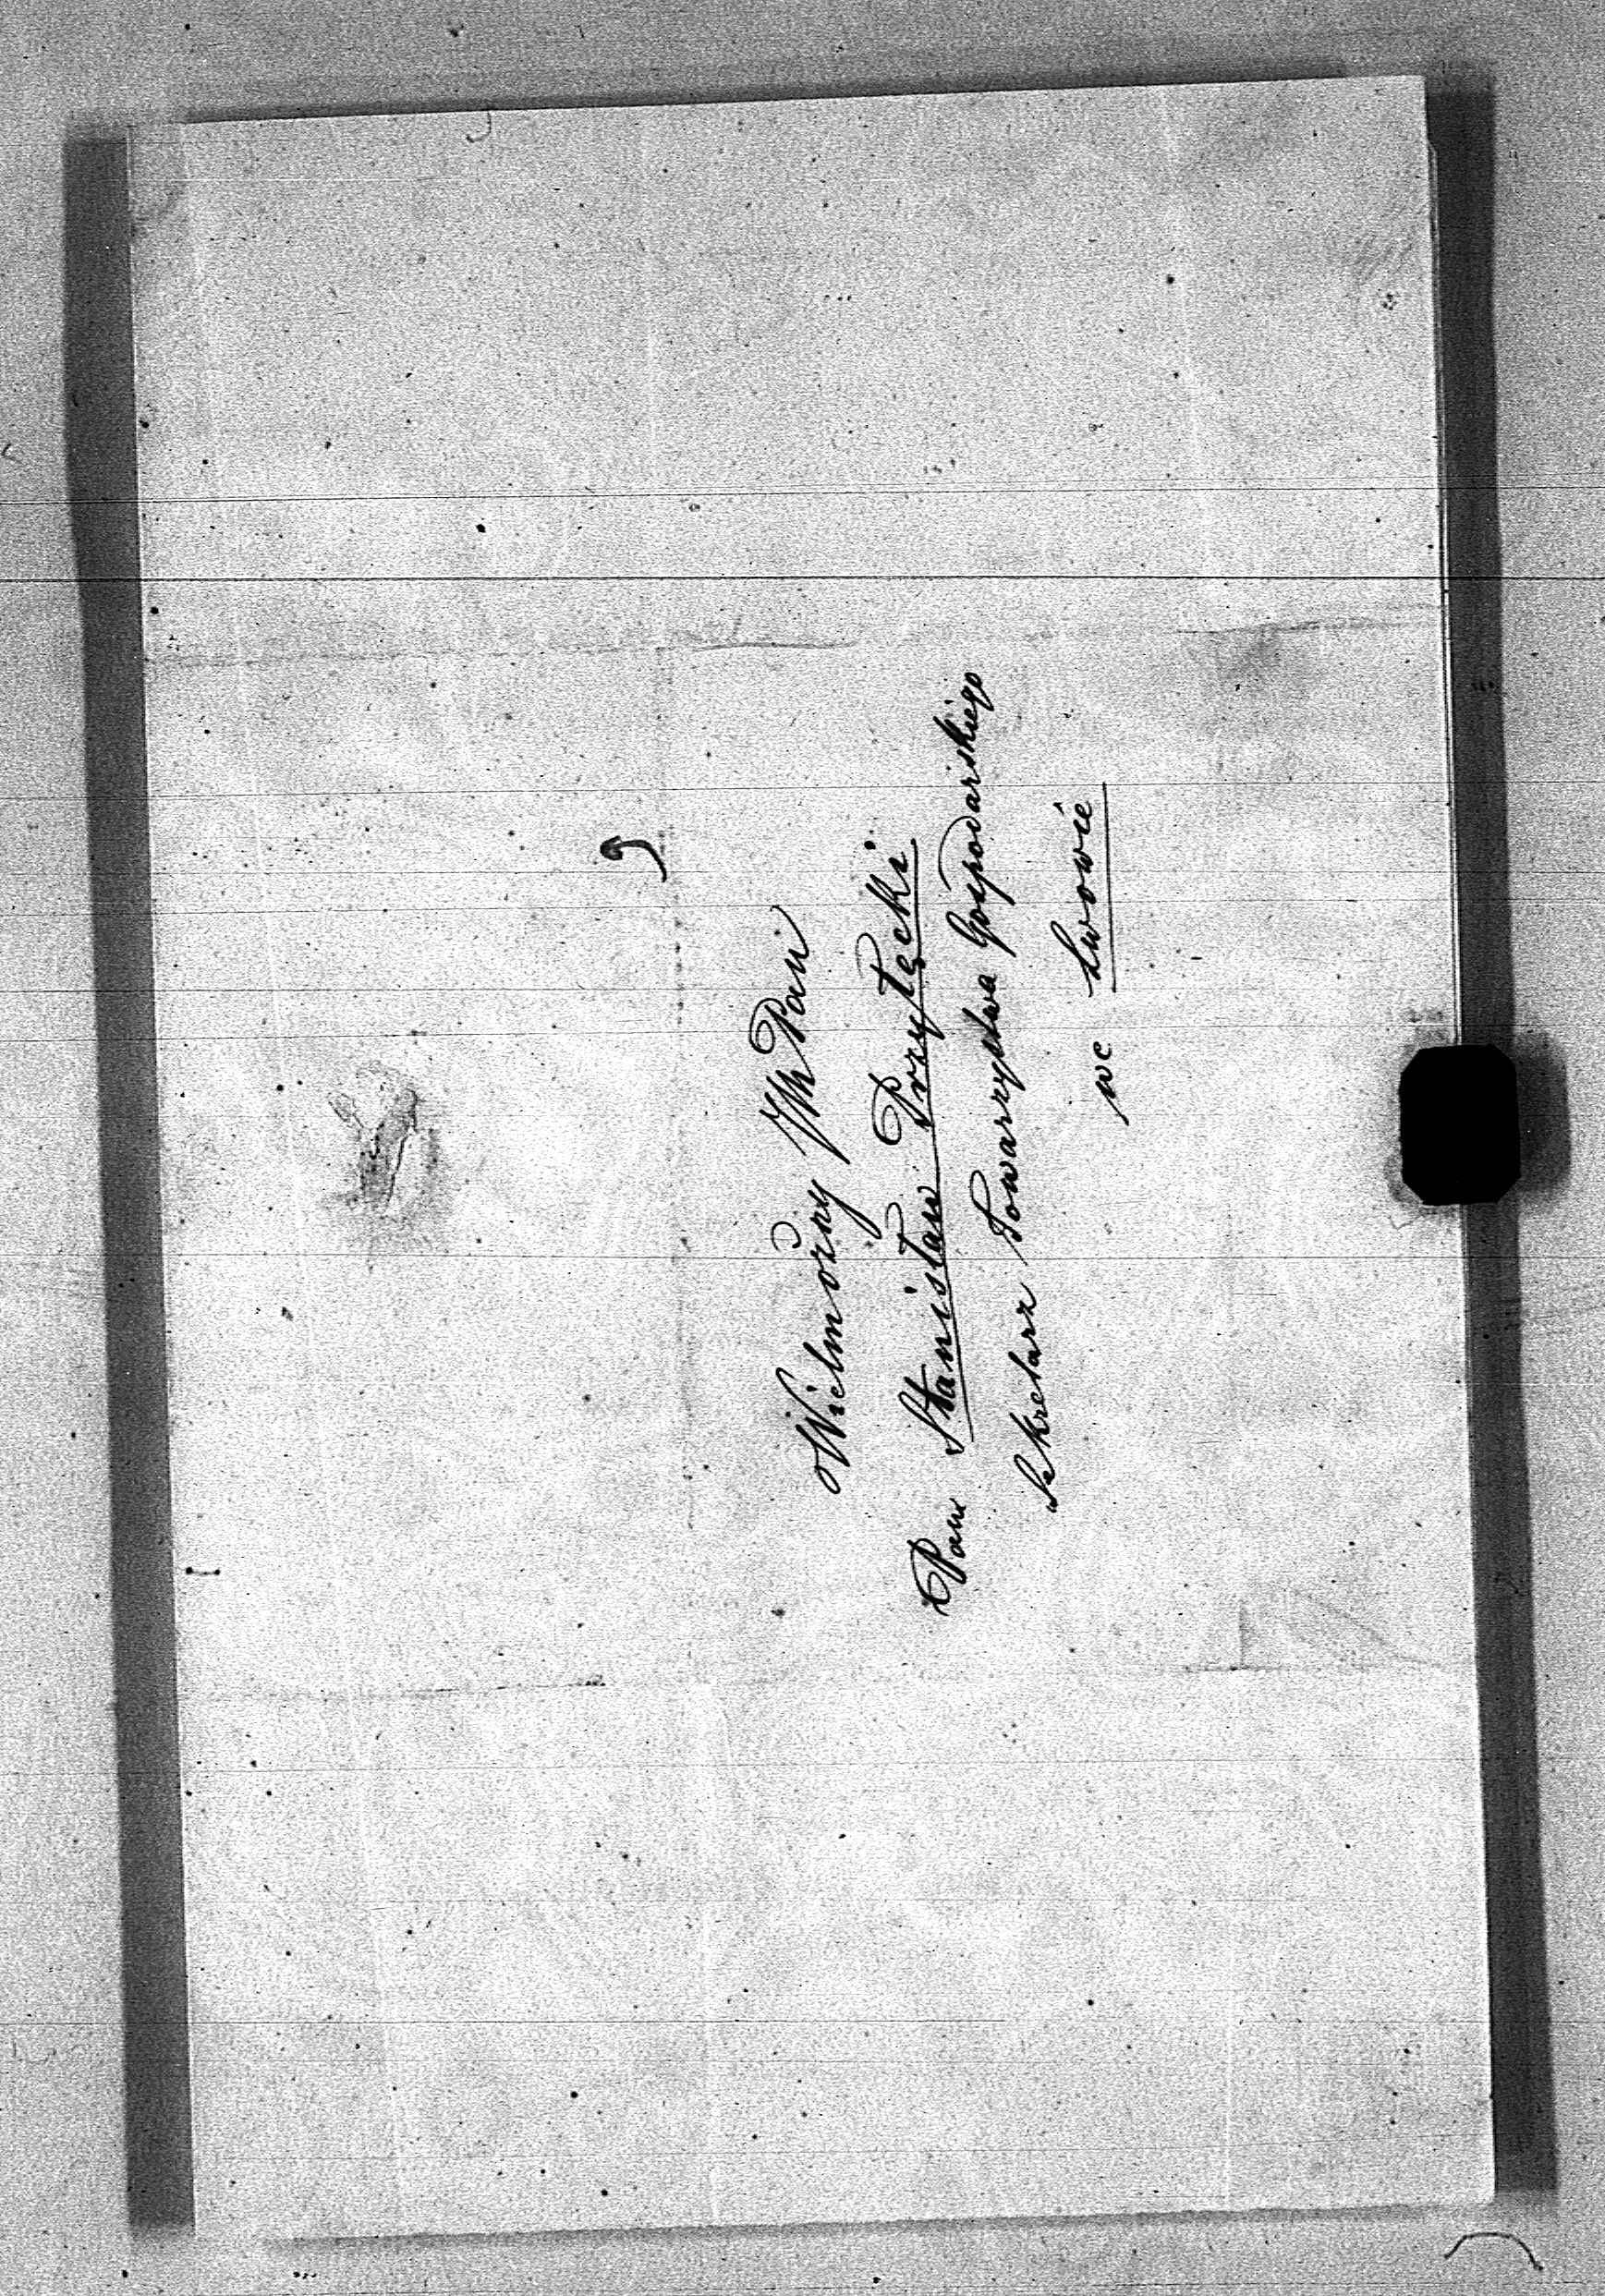 Wielmożny JhPan
Pan Stanisław Przyłęcki
Sekretarz Towarzystwa Gospodarskiego
we Lwowie